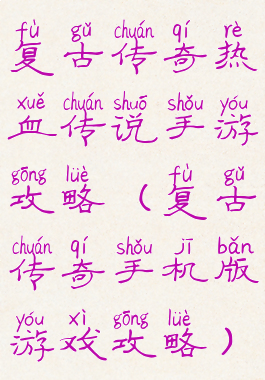 fù gǔ chuán qí rè
复古传奇热
xuě chuán shuō shǒu yóu
血传说手游
gōng lüè fù gǔ
攻略（复古
chuán qí shǒu jī bǎn
传奇手机版
yóu xì gōng lüè
游戏攻略）